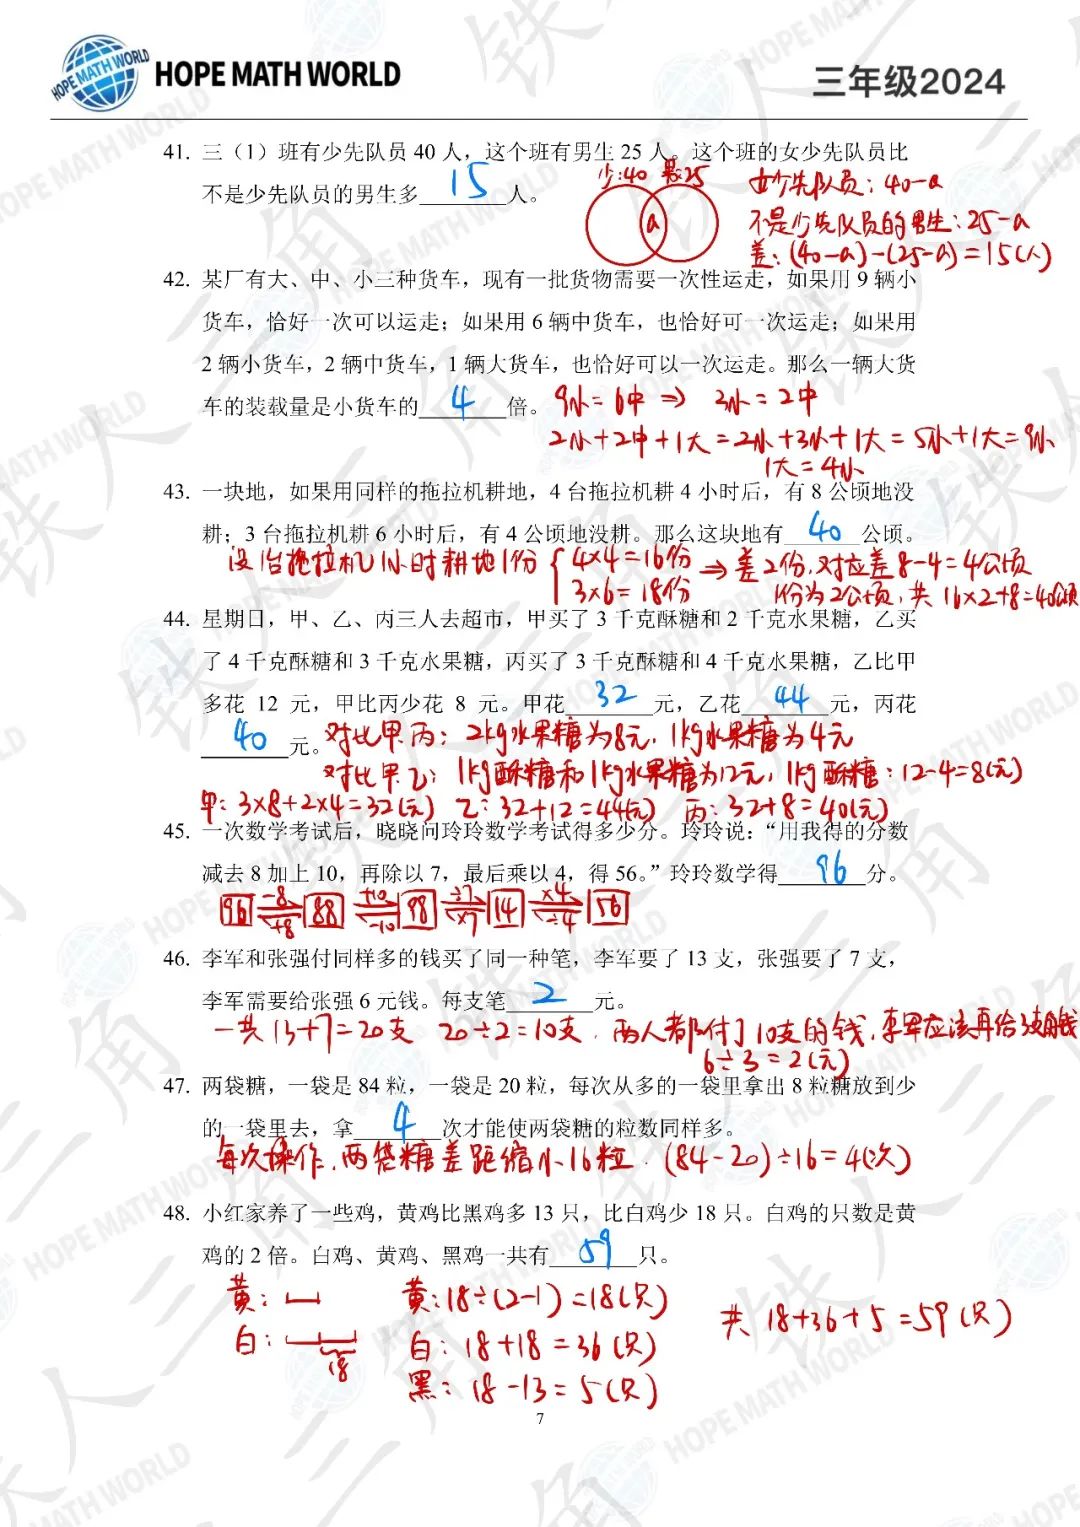 HOPE MATH WORLD
HOPE MATH WORLD
三年级2024
41. 三（1）班有少先队员 40 人，这个班有男生 25 人。这个班的女少先队员比
不是少先队员的男生多 15 人。
少:40 男:25
a
女少先队员: 40-a
不是少先队员的男生: 25-a
差: (40-a)-(25-a)=15(人)
42. 某厂有大、中、小三种货车，现有一批货物需要一次性运走，如果用 9 辆小
货车，恰好一次可以运走；如果用 6 辆中货车，也恰好可一次运走；如果用
2 辆小货车，2 辆中货车，1 辆大货车，也恰好可以一次运走。那么一辆大货
车的装载量是小货车的 4 倍。
9小=6中 ⇒ 3小=2中
2小+2中+1大=2小+3小+1大=5小+1大=9小
1大=4小
43. 一块地，如果用同样的拖拉机耕地，4 台拖拉机耕 4 小时后，有 8 公顷地没
耕；3 台拖拉机耕 6 小时后，有 4 公顷地没耕。那么这块地有 40 公顷。
设1台拖拉机1小时耕地1份
4×4=16份
3×6=18份
⇒差2份,对应差8-4=4公顷
1份为2公顷,共16×2+8=40公顷
44. 星期日，甲、乙、丙三人去超市，甲买了 3 千克酥糖和 2 千克水果糖，乙买
了 4 千克酥糖和 3 千克水果糖，丙买了 3 千克酥糖和 4 千克水果糖，乙比甲
多花 12 元，甲比丙少花 8 元。甲花 32 元，乙花 44 元，丙花
40 元。
对比甲.丙: 2kg水果糖为8元, 1kg水果糖为4元
对比甲.乙: 1kg酥糖和1kg水果糖为12元, 1kg酥糖: 12-4=8(元)
甲: 3×8+2×4=32(元) 乙: 32+12=44(元) 丙: 32+8=40(元)
45. 一次数学考试后，晓晓问玲玲数学考试得多少分。玲玲说：“用我得的分数
减去 8 加上 10，再除以 7，最后乘以 4，得 56。”玲玲数学得 96 分。
-8 +10 ÷7 ×4
96 88 98 14 56
+8 -10 ×7 ÷4
46. 李军和张强付同样多的钱买了同一种笔，李军要了 13 支，张强要了 7 支，
李军需要给张强 6 元钱。每支笔 2 元。
一共13+7=20支 20÷2=10支. 两人都付了10支的钱,李军应该再给3支的钱
6÷3=2(元)
47. 两袋糖，一袋是 84 粒，一袋是 20 粒，每次从多的一袋里拿出 8 粒糖放到少
的一袋里去，拿 4 次才能使两袋糖的粒数同样多。
每次操作,两袋糖差距缩小16粒. (84-20)÷16=4(次)
48. 小红家养了一些鸡，黄鸡比黑鸡多 13 只，比白鸡少 18 只。白鸡的只数是黄
鸡的 2 倍。白鸡、黄鸡、黑鸡一共有 59 只。
黄:
白:
18
黄: 18÷(2-1)=18(只)
白: 18+18=36(只)
黑: 18-13=5(只)
共 18+36+5=59(只)
7